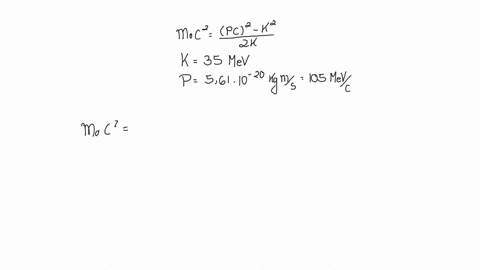 m₀c² = (PC)² - K² / 2K
K = 35 MeV
P = 5,61 · 10⁻²⁰ Kg m/s = 105 MeV/c
m₀ c² =